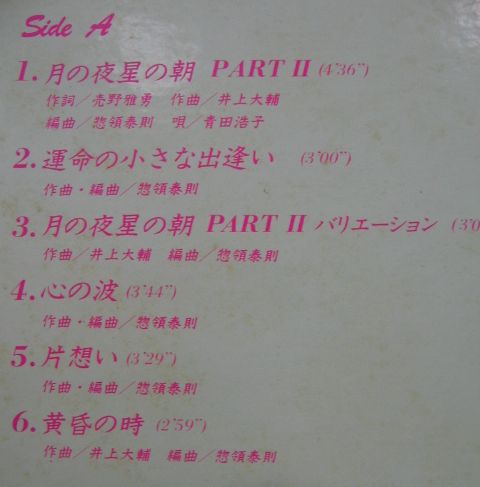 Side A
1. 月の夜星の朝 PART II (4'36")
作詞／売野雅勇 作曲／井上大輔
編曲／惣領泰則 唄／青田浩子
2. 運命の小さな出逢い (3'00")
作曲・編曲／惣領泰則
3. 月の夜星の朝 PART II バリエーション (3'0
作曲／井上大輔 編曲／惣領泰則
4. 心の波 (3'44")
作曲・編曲／惣領泰則
5. 片想い (3'29")
作曲・編曲／惣領泰則
6. 黄昏の時 (2'59")
作曲／井上大輔 編曲／惣領泰則